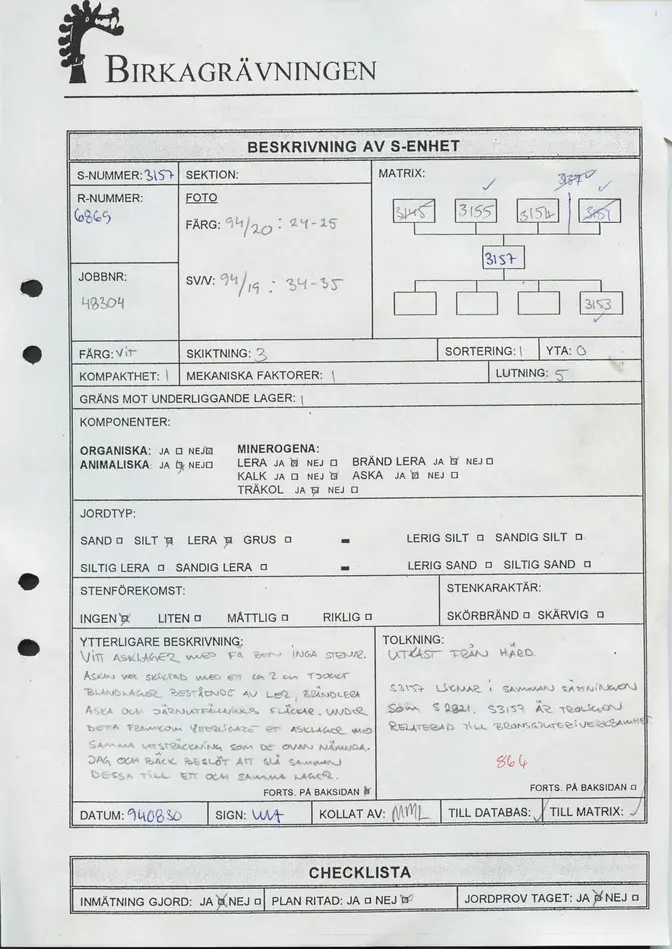 BIRKAGRÄVNINGEN
BESKRIVNING AV S-ENHET
S-NUMMER: 3157 SEKTION: MATRIX:
R-NUMMER: 6869 FOTO
FÄRG: 94/20 : 24-25
3137
3145 3155 3154 3151
3157
JOBBNR: 48304
SV/V: 94/19 : 34-35
3153
FÄRG: VIT SKIKTNING: 3 SORTERING: 1 YTA: 0
KOMPAKTHET: 1 MEKANISKA FAKTORER: 1 LUTNING: 5
GRÄNS MOT UNDERLIGGANDE LAGER: 1
KOMPONENTER:
ORGANISKA: JA NEJ MINEROGENA:
ANIMALISKA: JA NEJ LERA JA NEJ BRÄND LERA JA NEJ
KALK JA NEJ ASKA JA NEJ
TRÄKOL JA NEJ
JORDTYP:
SAND SILT LERA GRUS - LERIG SILT SANDIG SILT
SILTIG LERA SANDIG LERA - LERIG SAND SILTIG SAND
STENFÖREKOMST: STENKARAKTÄR:
INGEN LITEN MÅTTLIG RIKLIG SKÖRBRÄND SKÄRVIG
YTTERLIGARE BESKRIVNING:
VITT ASKLAGER MED FÅ BEN INGA STENAR.
ASKAN VAR SKIKTAD MED ETT CA 2 CM TJOCKT
BLANDLAGER BESTÅENDE AV LER, BRÄNDLERA
ASKA OCH JÄRNUTFÄLLNINGS FLÄCKAR. UNDER
DETTA FRAMKOM YTTERLIGARE ET ASKLAGER MED
SAMMA UTSTRÄCKNING SOM DE OVAN NÄMNDA.
JAG OCH BÄCK BESLÖT ATT SLÅ SAMMAN
DESSA TILL ETT OCH SAMMA LAGER.
FORTS. PÅ BAKSIDAN
TOLKNING:
UTKAST FRÅN HÄRD.
S3157 LIKNAR I SAMMANSÄTTNINGEN
SOM S2821. S3157 ÄR TROLIGEN
RELATERAD TILL BRONSGJUTERIVERKSAMHET
864
FORTS. PÅ BAKSIDAN
DATUM: 940830 SIGN: KOLLAT AV: MML TILL DATABAS: TILL MATRIX:
CHECKLISTA
INMÄTNING GJORD: JA NEJ PLAN RITAD: JA NEJ JORDPROV TAGET: JA NEJ